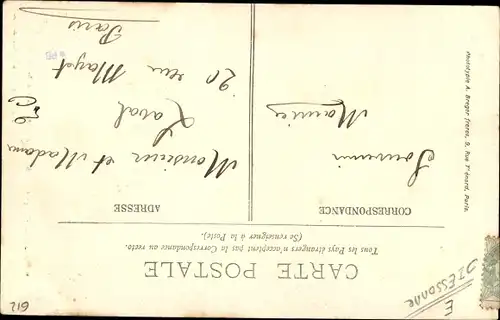 CARTE POSTALE
Tous les Pays étrangers n'acceptent pas la Correspondance au recto.
(Se renseigner à la Poste).
CORRESPONDANCE
ADRESSE
Souvenir
Maurice
Monsieur et Madame
Laval
20 rue Mayet
Paris
Phototypie A. Breger frères, 9, Rue Thénard, Paris.
E
219